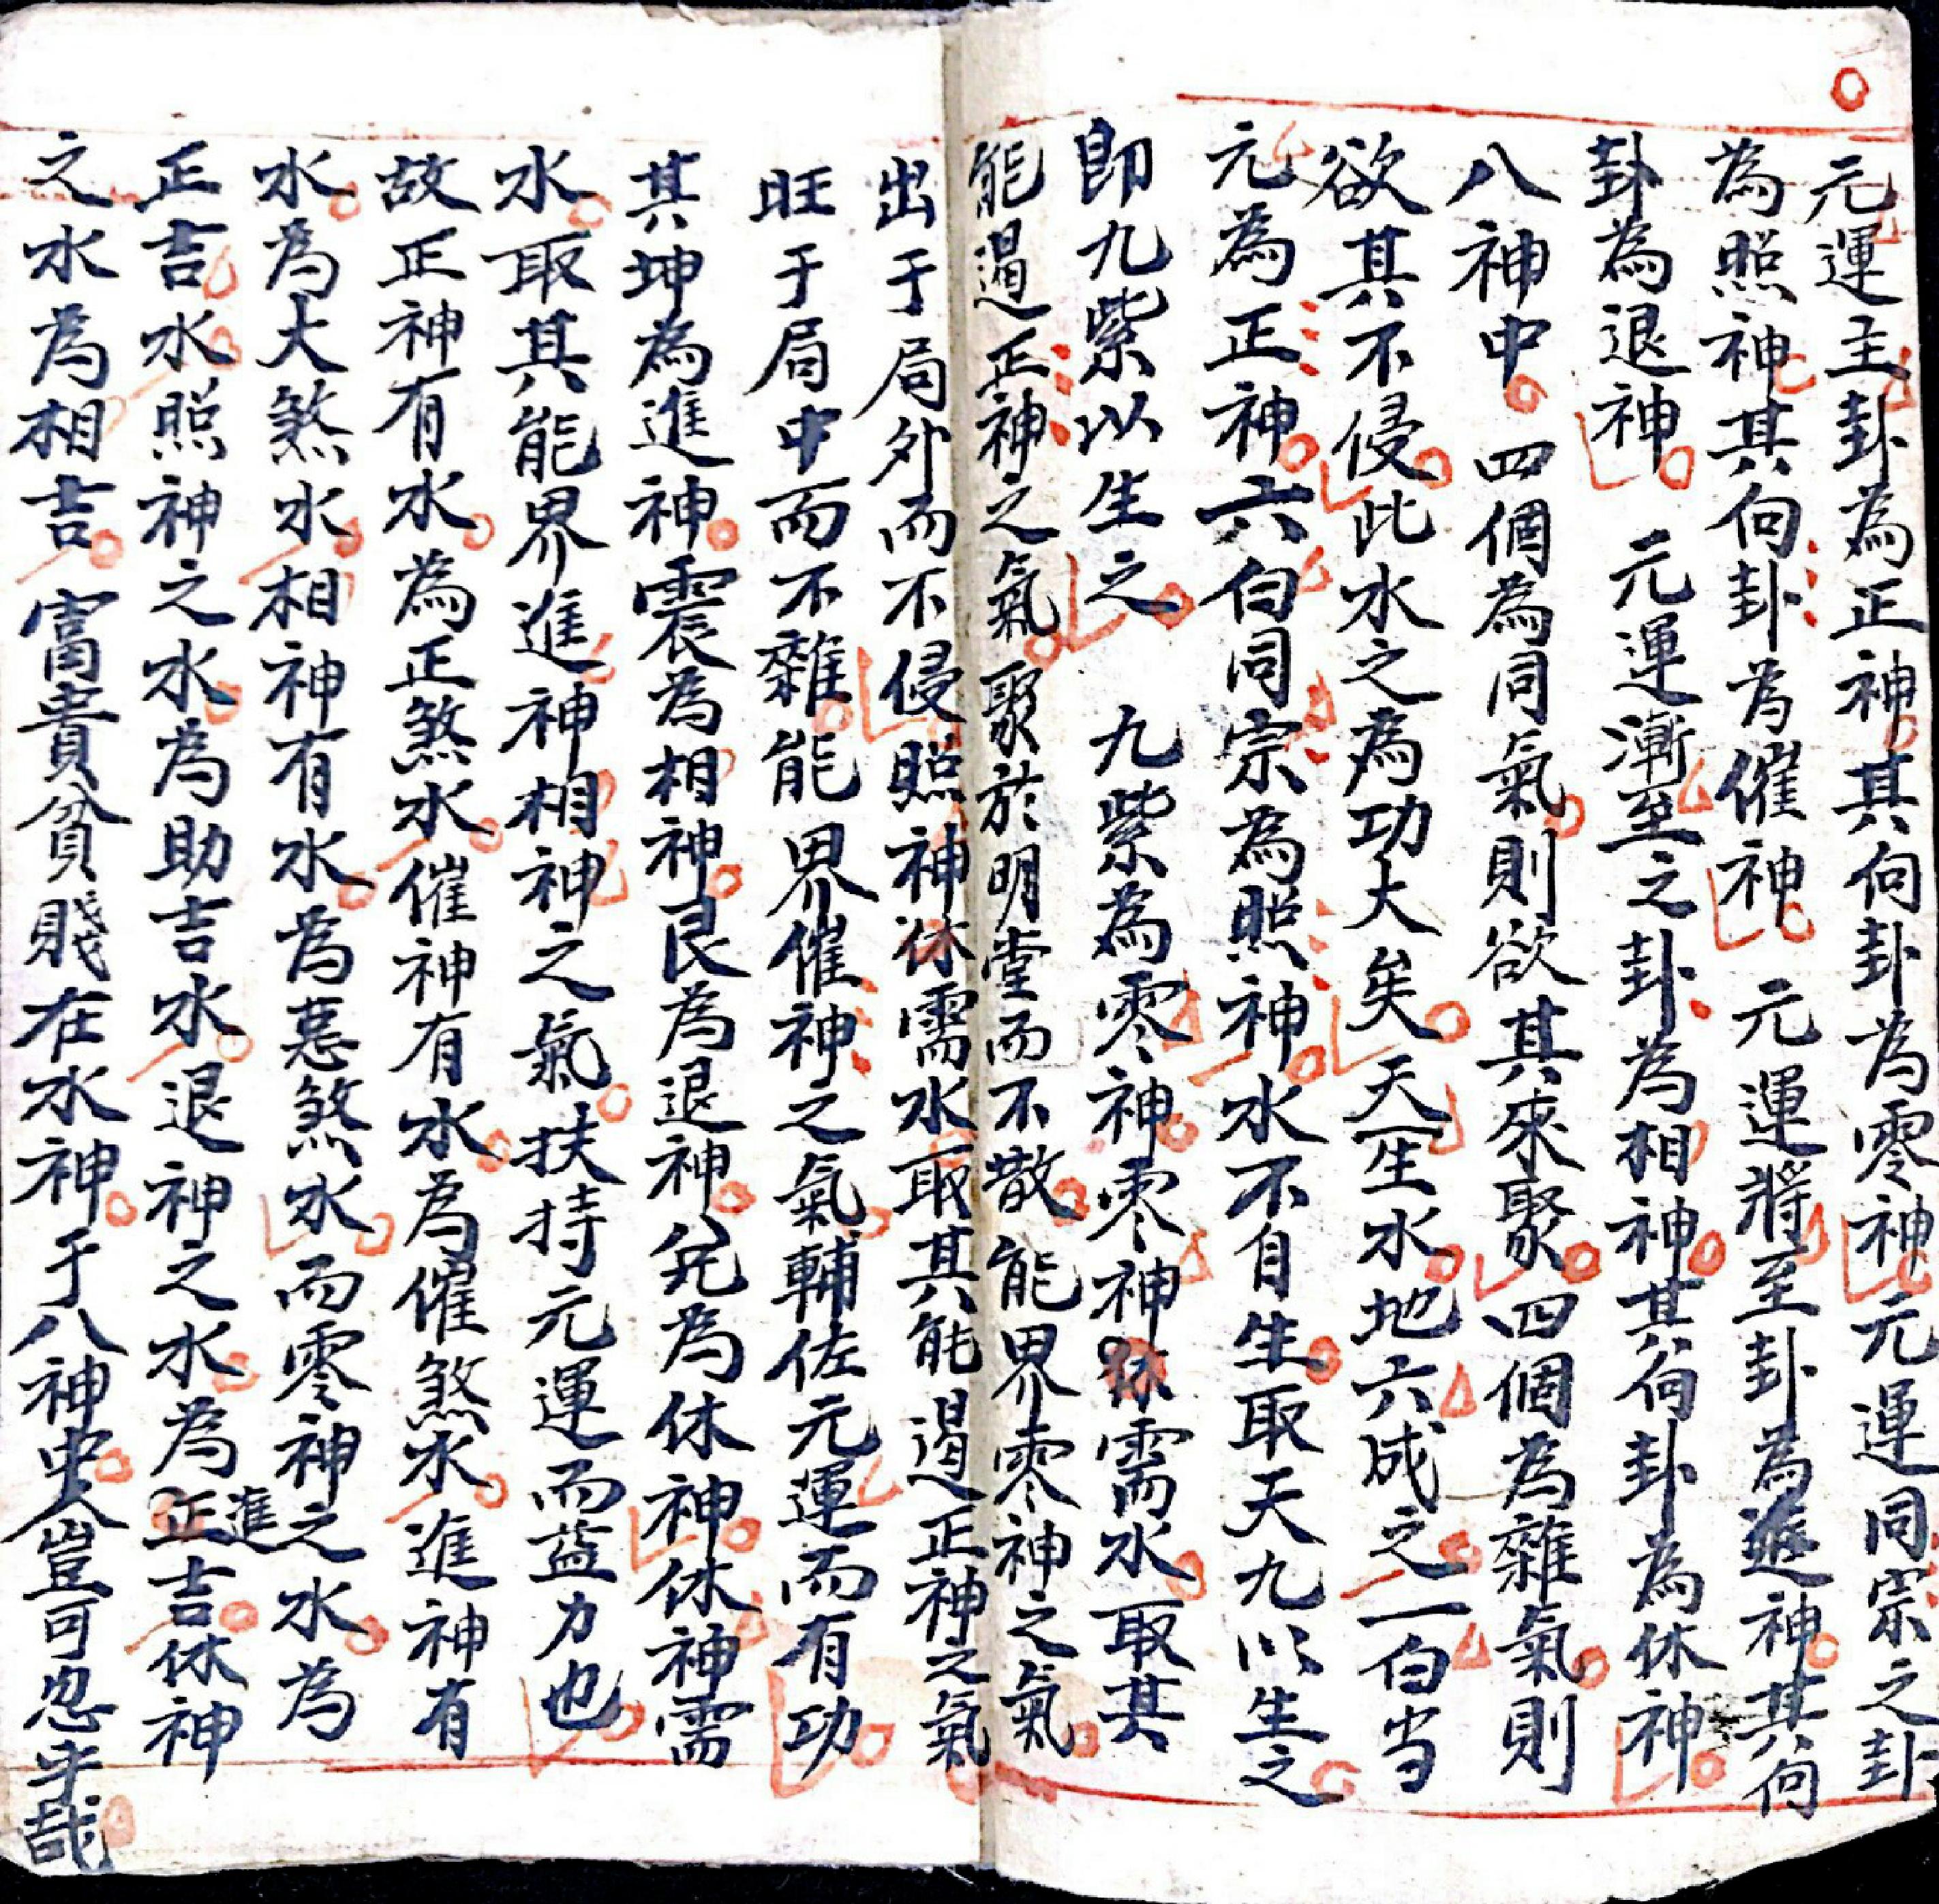 元運主卦為正神其向卦為零神元運同宗之卦
為照神其向卦為催神元運將至卦為進神其向
卦為退神元運漸至之卦為相神其向卦為休神
八神中四個為同氣則欲其來聚四個為雜氣則
欲其不侵此水之為功大矣天一生水地六成之一白当
元為正神六白同宗為照神水不自生取天九以生之
即九紫以生之九紫為零神零神需水取其
能遏正神之氣聚於明堂而不散能界零神之氣
出于局外而不侵照神休需水取其能遏正神之氣
旺于局中而不雜能界催神之氣輔佐元運而有功
其坤為進神震為相神艮為退神兑為休神休神需
水取其能界進神相神之氣扶持元運而益力也
故正神有水為正煞水催神有水為催煞水進神有
水為大煞水相神有水為惡煞水而零神之水為
正吉水照神之水為助吉水退神之水為進吉休神
之水為相吉富貴貧賤在水神于八神中人豈可忽乎哉